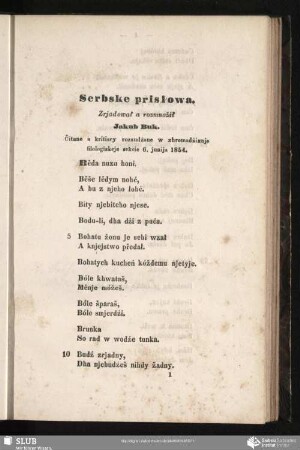 Serbske prisłowa.
Zejadował a rozmnožił
Jakub Buk.
Čitane a kritisry rozsudźene w zhromadźiznje
filologiskeje sekcie 6. junija 1854.
Běda nuzu honi.
Běše lědym nohé,
A hu z njeho łohć.
Bity njebitcho njese.
Bodo-li, dha dźi z puća.
5 Bohatu žonu je sebi wzał
A knjejstwo předał.
Bohatych kucheń kóždemu njetyje.
Bóle khwataš,
Mjenje móžeš.
Bóle šparaš,
Bóle smjerdźi.
Brunka
So rad w wodźe tunka.
10 Budź zrjadny,
Dha njebudźeš nihdy žadny.
1
SLUB